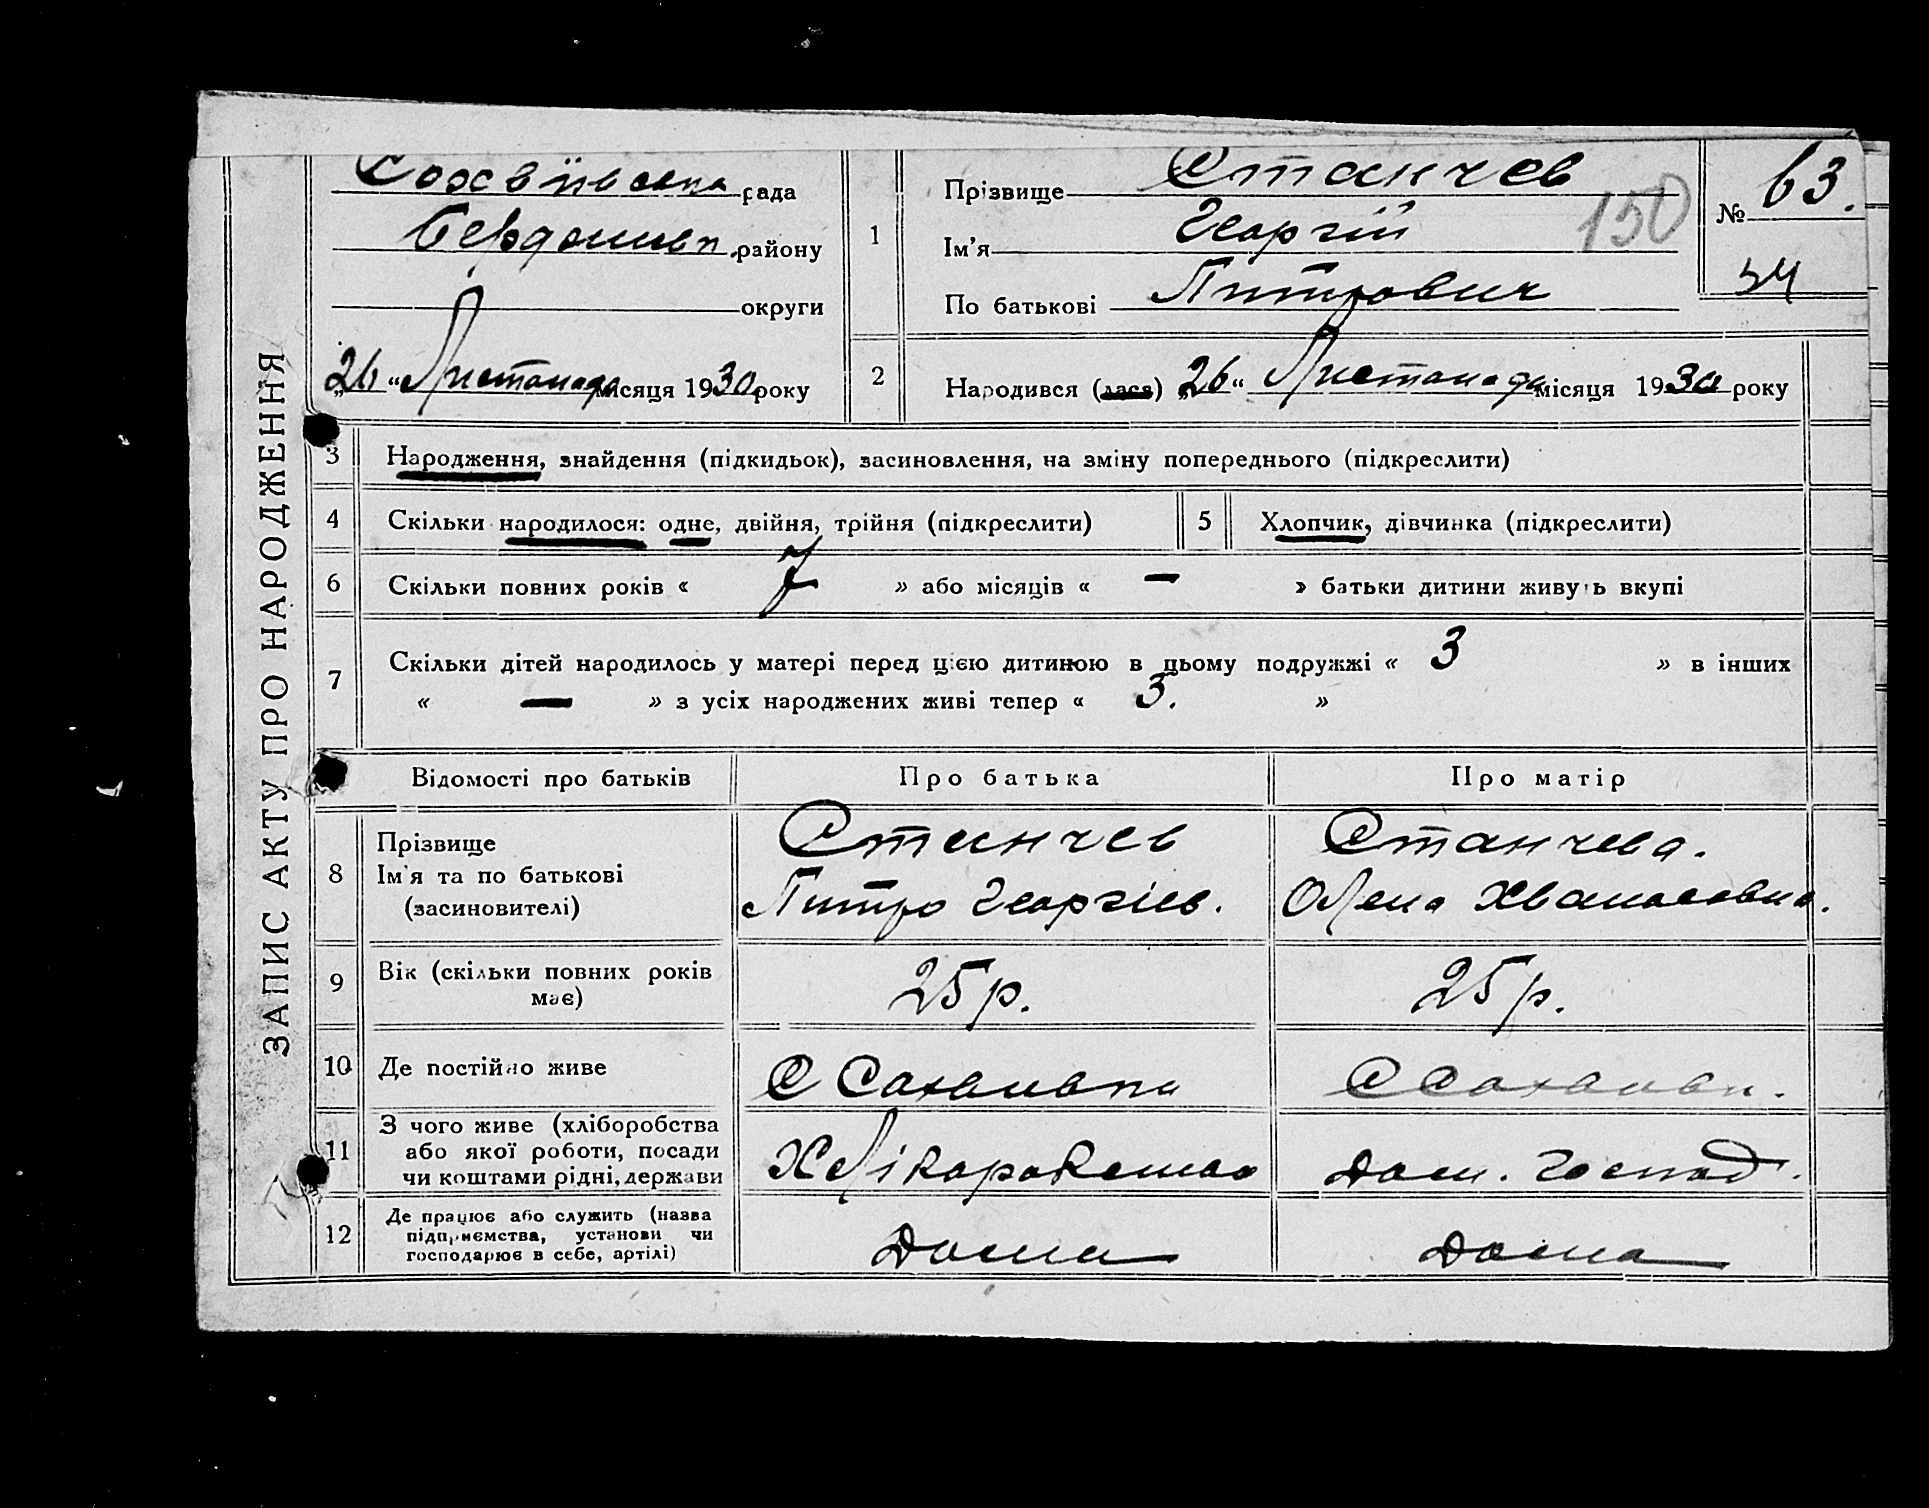 ЗАПИС АКТУ ПРО НАРОДЖЕННЯ
рада
району
округи
„26“ Листопада місяця 1930 року
1
Прізвище Станчев
Ім'я Георгій
По батькові Питрович
150
№ 63.
54
2
Народився (лася) „26“ Листопада місяця 1930 року
3 Народження, знайдення (підкидьок), засиновлення, на зміну попереднього (підкреслити)
4 Скільки народилося: одне, двійня, трійня (підкреслити)
5 Хлопчик, дівчинка (підкреслити)
6 Скільки повних років « 7 » або місяців « — » батьки дитини живуть вкупі
7 Скільки дітей народилось у матері перед цією дитиною в цьому подружжі « 3 » в інших
« — » з усіх народжених живі тепер « 3. »
Відомості про батьків
Про батька
Про матір
8 Прізвище
Ім'я та по батькові
(засиновителі)
Станчев
Питро Георгіев.
Станчева.
Олена
9 Вік (скільки повних років
має)
25 р.
25 р.
10 Де постійно живе
С
С
11 З чого живе (хліборобства
або якої роботи, посади
чи коштами рідні, держави
Дом. Господ.
12 Де працює або служить (назва
підприємства, установи чи
господарює в себе, артілі)
Дома
Дома